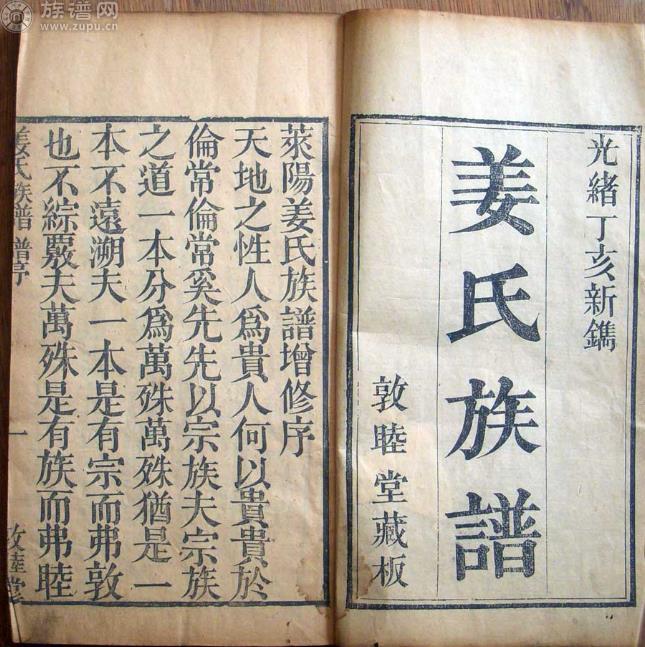 光緒丁亥新鐫
姜氏族譜
敦睦堂藏板
萊陽姜氏族譜增修序
天地之性人爲貴人何以貴貴於
倫常倫常奚先先以宗族夫宗族
之道一本分爲萬殊萬殊猶是一
本不遠溯夫一本是有宗而弗敦
也不綜覈夫萬殊是有族而弗睦
姜氏族譜 譜序 一 敦睦堂
族谱网
www.zupu.cn